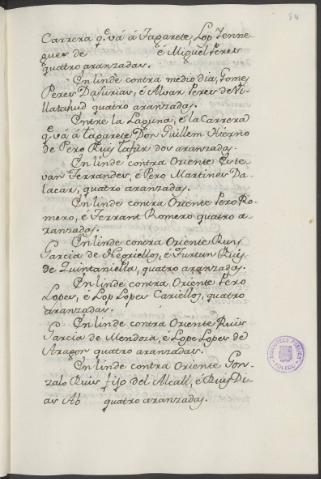 Carrera q.e vá á Taparete, Lop Fenne
guer de é Miguel Peres
quatro aranzadas.
En linde contra medio dia, Gome
Peres Dasturias, é Alvar Peres de Vi
llatahud quatro aranzadas.
Entre la Laguna, é la Carrera
q.e vá á Taparete Don Guillem Yierno
de Pero Ruiz Tafur dos aranzadas.
En linde contra Oriente Este
van Ferrandes, é Pero Martines Da
lacas, quatro aranzadas.
En linde contra Oriente Pero Ro
mero, é Ferrant Romero quatro a
ranzadas.
En linde contra Oriente Ruis
Garcia de Negriellos, é Furtun Ruis
de Quintaniella, quatro aranzadas.
En linde contra Oriente Pero
Lopes, é Lop Lopes Cariellos, quatro
aranzadas.
En linde contra Oriente Ruiis
Garcia de Mendoza, é Lope Lopes de
Aragon quatro aranzadas.
En linde contra Oriente Gon
zalo Ruis fijo del Alcall, é Ruis Di
as Ab quatro aranzadas.